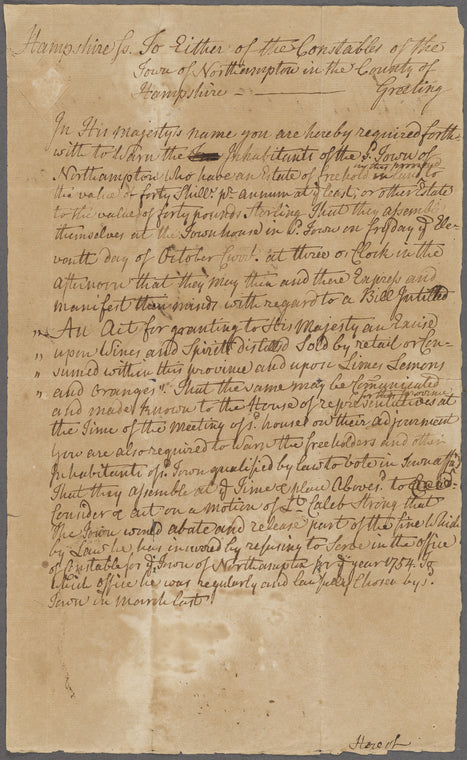 Hampshire ss. To Either of the Constables of the
Town of Northampton in the County of
Hampshire - - Greeting
In His Majesty's name you are hereby required forth-
with to Warn the Inhabitants of the sd. Town of
Northampton who have an Estate of freehold in Land
in this province or
to the value of forty Shills. pr annum at ye least; or other Estate
to the value of forty pounds Sterling That they assemble
themselves at the Townhouse in sd. Town on friday ye Ele-
venth day of October Curt. at three o Clock in the
afternoon that they may then and there Express and
manifest their minds with regard to a Bill Intitled
" An Act for granting to His Majesty an Excise
" upon Wines and Spirits distilled Sold by retail or Con-
" sumed within this province and upon Limes Lemons
" and Oranges". That the same may be Communicated
and made known to the House of representatives at
of this province
the Time of the Meeting of sd. house on their adjournment
you are also required to Warn the freeholders and other
Inhabitants of sd. Town qualified by law to Vote in Town affairs
That they assemble at ye Time & place Abovesd. to
Consider & act on a motion of Lt. Caleb Strong that
The Town would abate and release part of the fine Which
by Law he has incurred by refusing to Serve in the office
of Constable for ye Town of Northampton for ye year 1754. To
Which office he was regularly and lawfully Chosen by sd.
Town in March last
Hereof